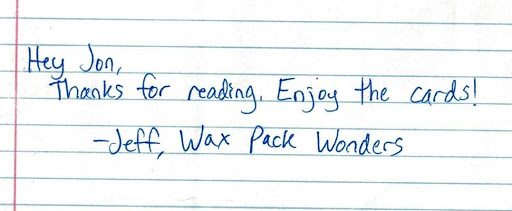 Hey Jon,
Thanks for reading. Enjoy the cards!
-Jeff, Wax Pack Wonders